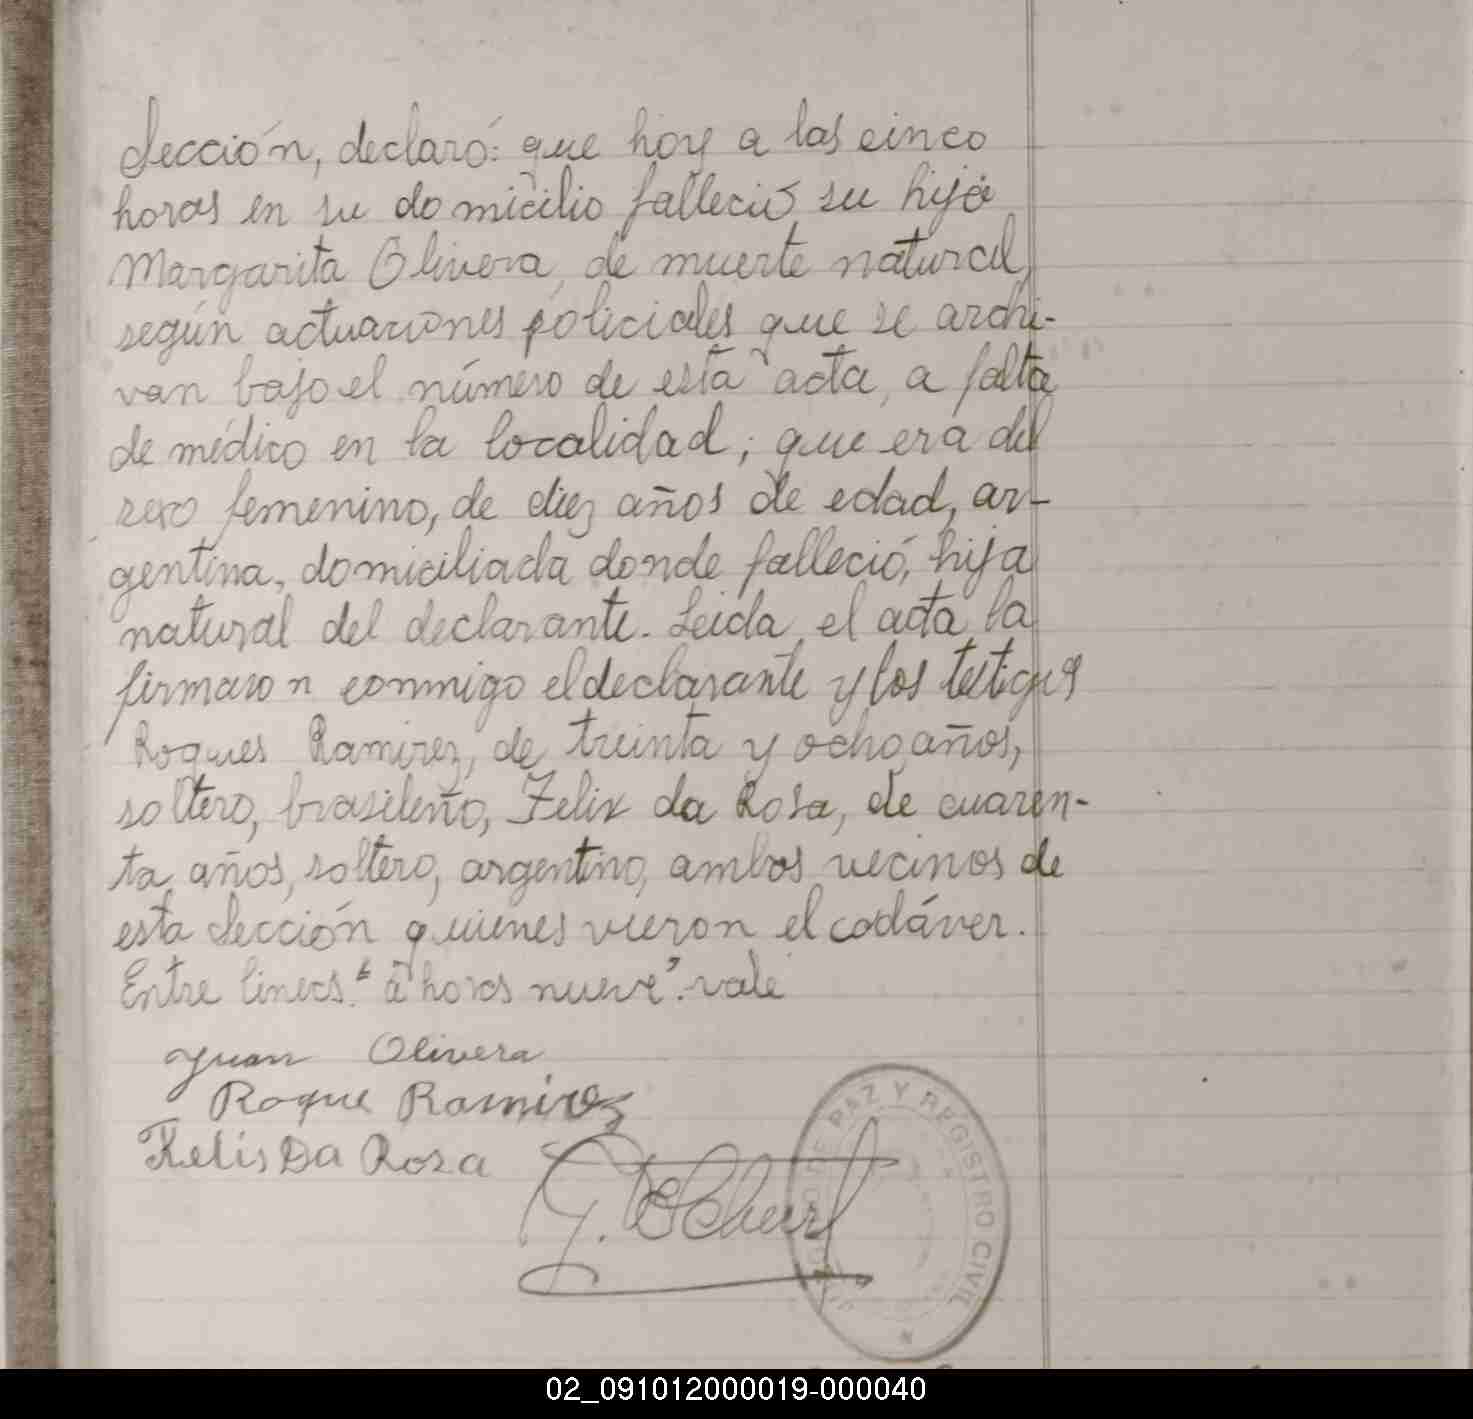 Sección, declaró: que hoy a las cinco
horas en su domicilio falleció su hija
Margarita Olivera, de muerte natural,
según actuaciones policiales que se archi-
van bajo el número de esta acta, a falta
de médico en la localidad; que era del
sexo femenino, de diez años de edad, ar-
gentina, domiciliada donde falleció, hija
natural del declarante. Leida el acta la
firmaron conmigo el declarante y los testigos
Roques Ramirez, de treinta y ocho años,
soltero, brasileño, Felix da Rosa, de cuaren-
ta años, soltero, argentino, ambos vecinos de
esta Sección quienes vieron el cadáver.
Entre lineas: "a horas nueve". vale
Juan Olivera
Roque Ramirez
Felis Da Rosa
DE PAZ Y REGISTRO CIVIL
02_091012000019-000040